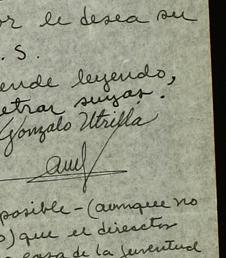 or le desea su
. S.
ende leyendo,
letras suyas.
Gonzalo Utrilla
posible - (aunque no
o) que el director
casa de la juventud